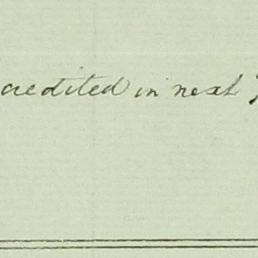 credited in next